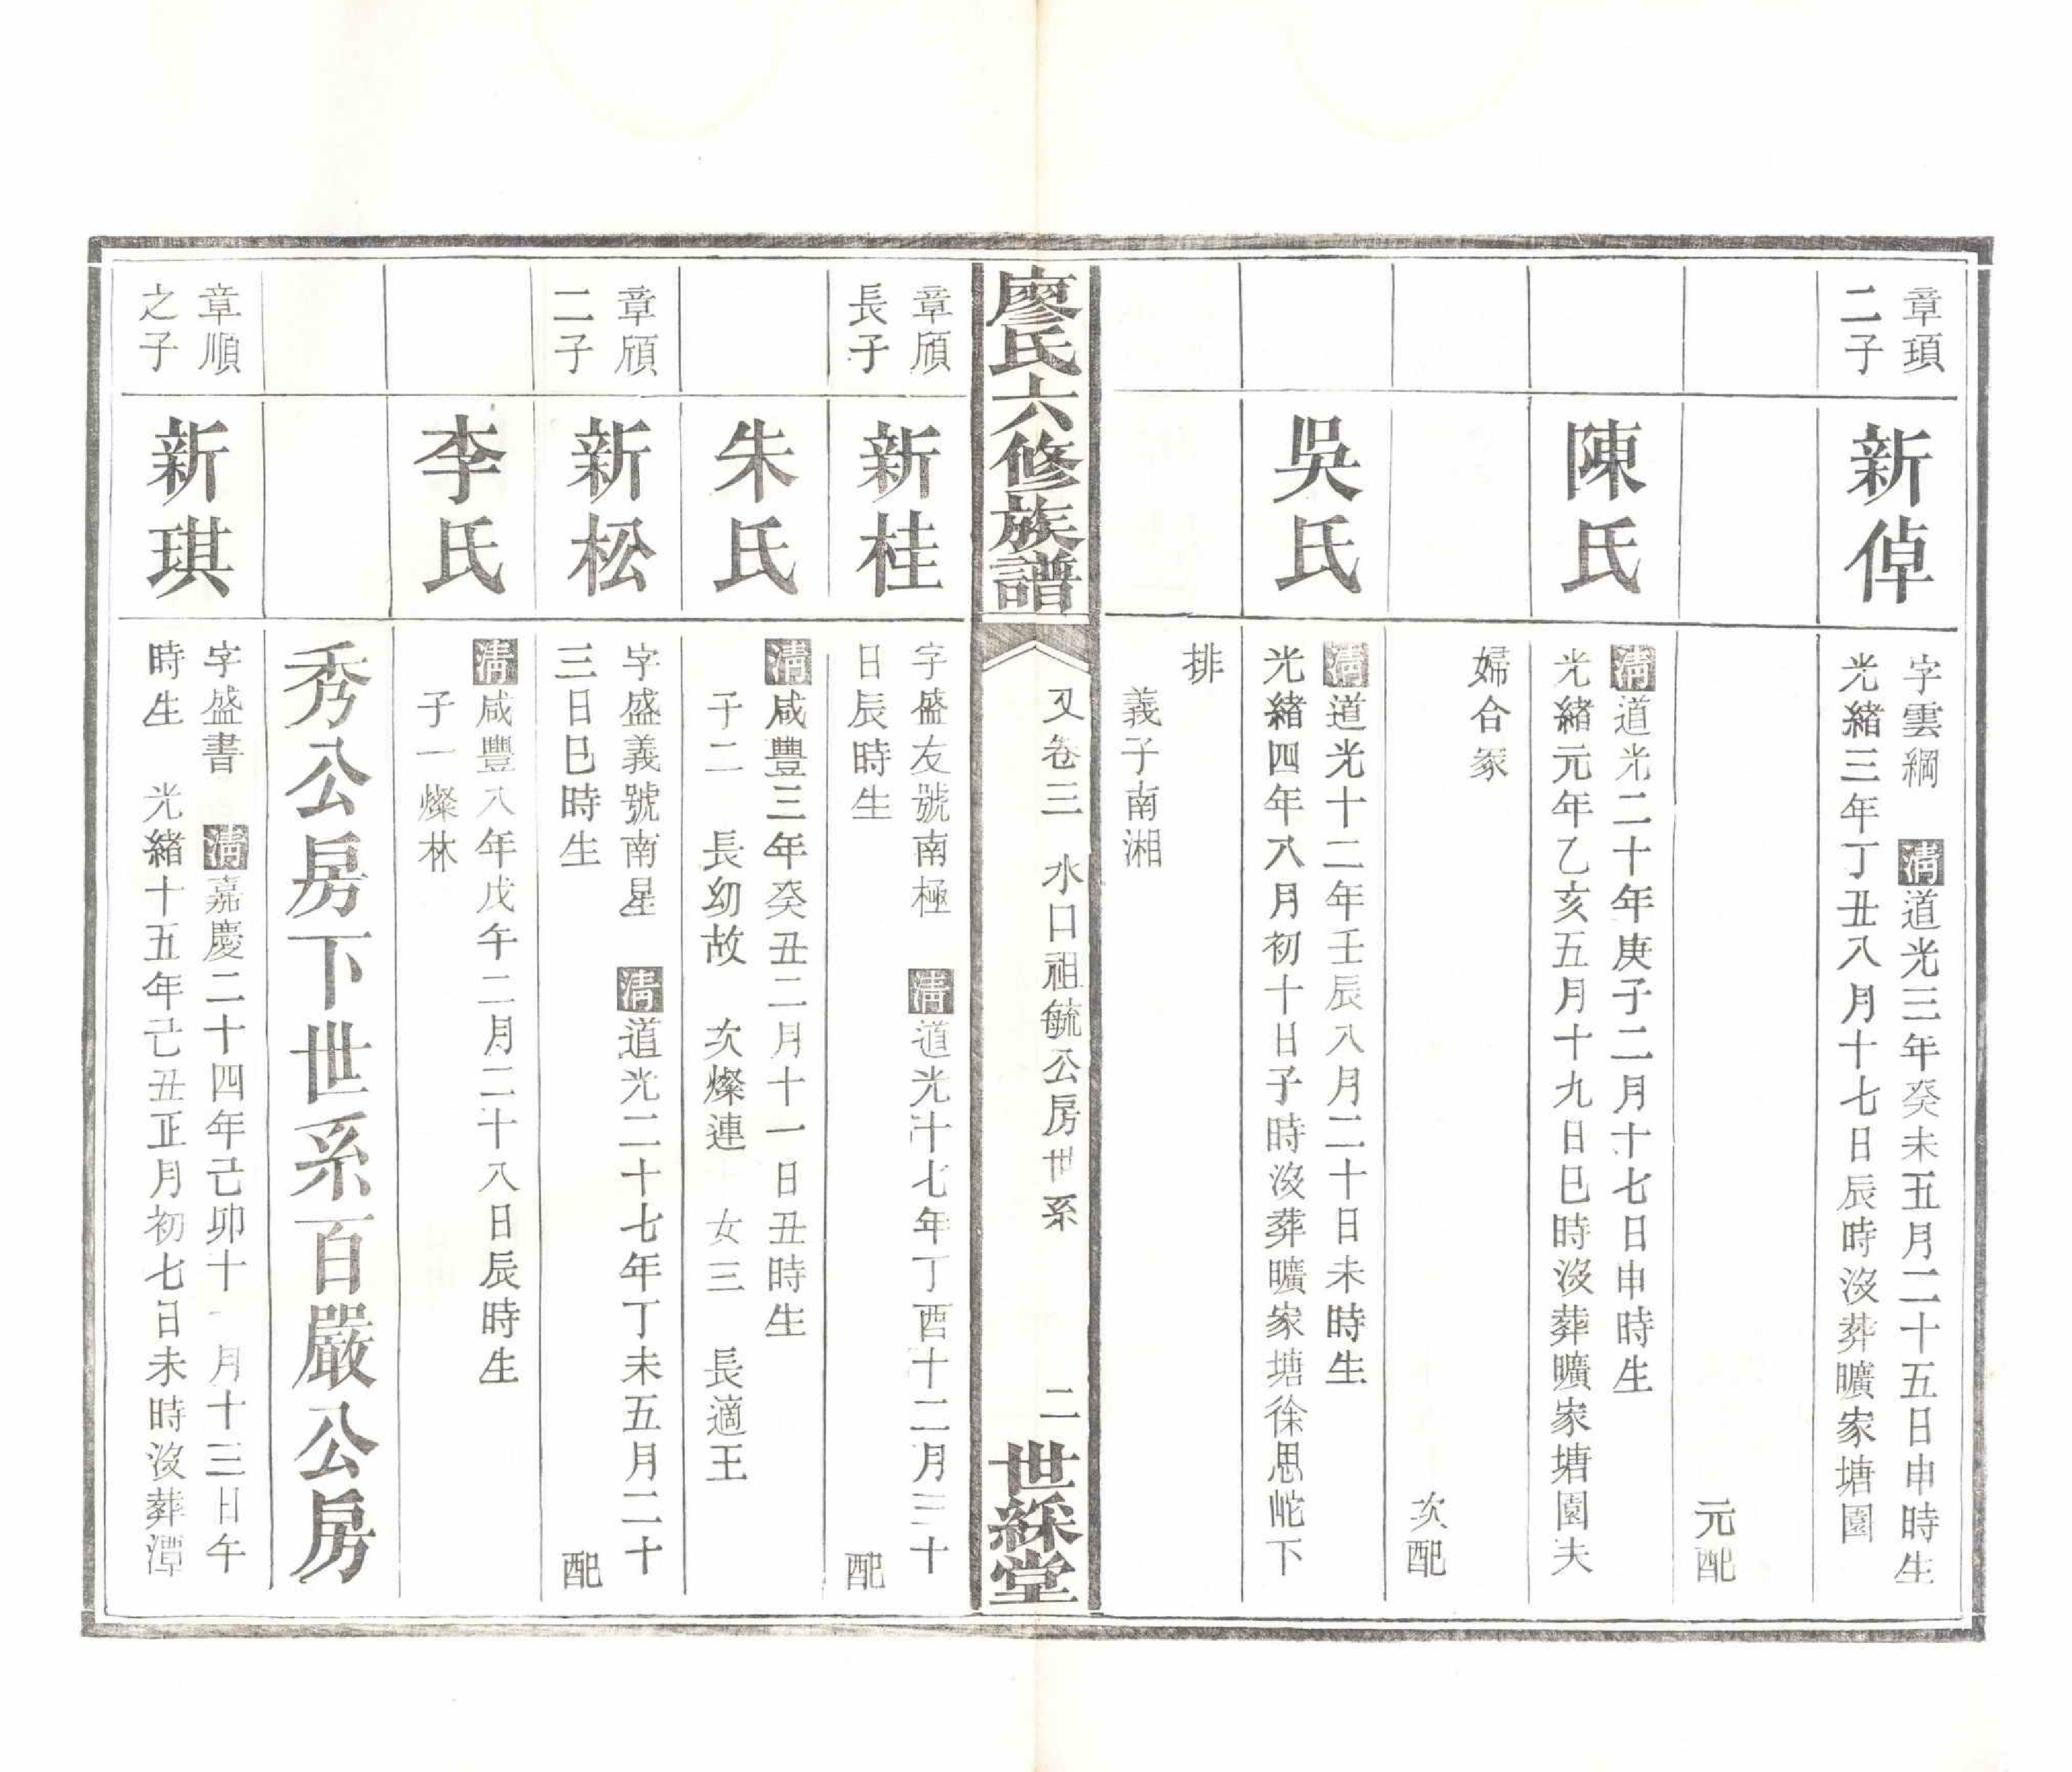 章頊
二子
新倬
字雲綱　清道光三年癸未五月二十五日申時生
光緒三年丁丑八月十七日辰時沒葬曠家塘園
元配
陳氏
清道光二十年庚子二月十七日申時生
光緒元年乙亥五月十九日巳時沒葬曠家塘園夫
婦合冢
次配
吳氏
清道光十二年壬辰八月二十日未時生
光緒四年八月初十日子時沒葬曠家塘徐思岮下
排
義子南湘
廖氏六修族譜
又卷三　水口祖毓公房世系
二
世綵堂
章頎
長子
新桂
字盛友號南極　清道光十七年丁酉十二月三十
日辰時生
配
朱氏
清咸豐三年癸丑二月十一日丑時生
子二　長幼故　次燦連　女三　長適王
章頎
二子
新松
字盛義號南星　清道光二十七年丁未五月二十
三日巳時生
配
李氏
清咸豐八年戊午二月二十八日辰時生
子一燦林
秀公房下世系百嚴公房
章順
之子
新琪
字盛書　清嘉慶二十四年己卯十一月十三日午
時生　光緒十五年己丑正月初七日未時沒葬潭